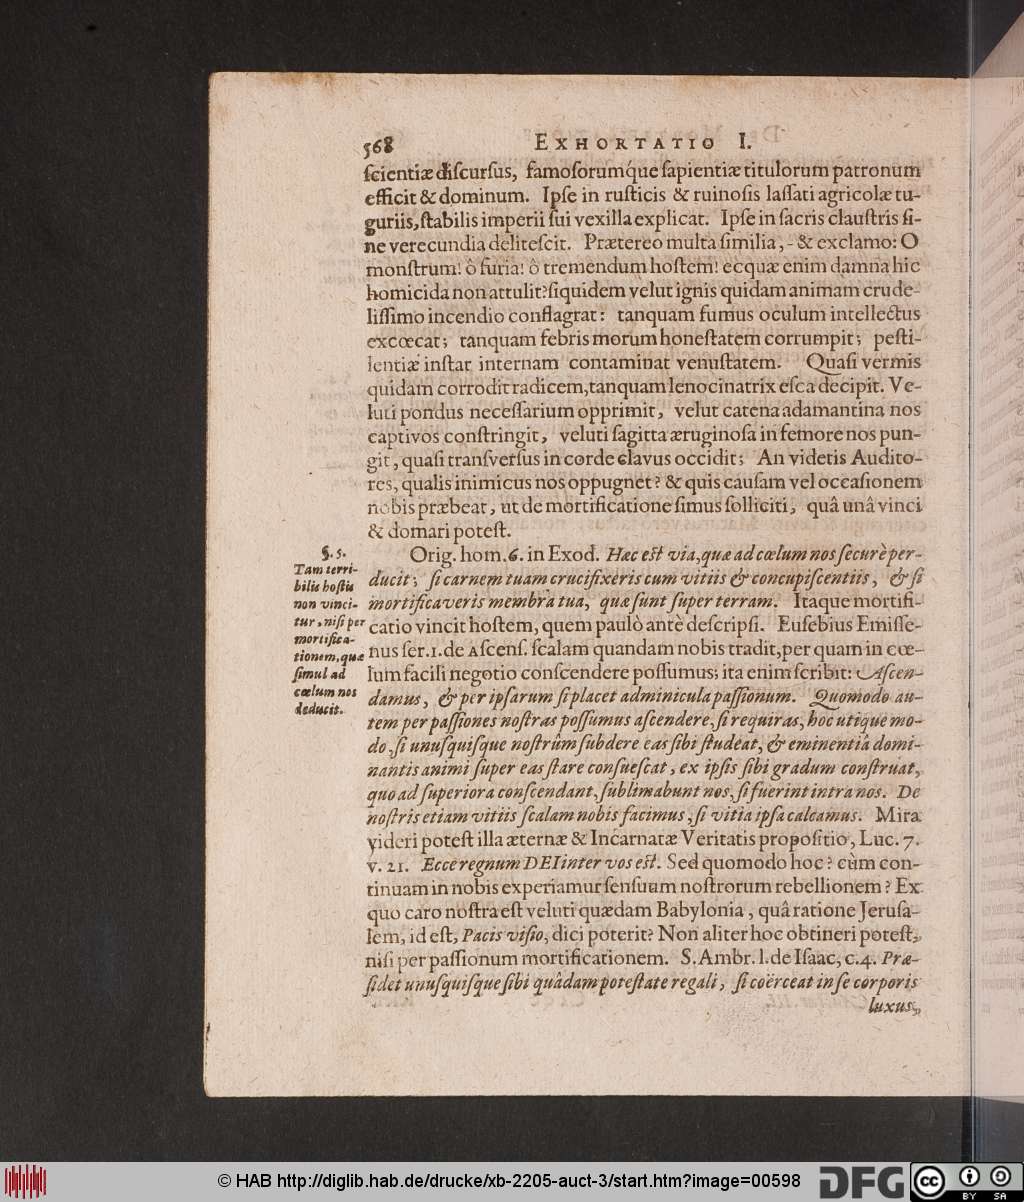 568 EXHORTATIO I.
ſcientiæ diſcurſus, famoſorumq́ue ſapientiæ titulorum patronum
efficit & dominum. Ipſe in ruſticis & ruinoſis laſſati agricolæ tu-
guriis, ſtabilis imperii ſui vexilla explicat. Ipſe in ſacris clauſtris ſi-
ne verecundia deliteſcit. Prætereo multa ſimilia, - & exclamo: O
monſtrum! ô furia! ô tremendum hoſtem! ecquæ enim damna hic
homicida non attulit? ſiquidem velut ignis quidam animam crude-
liſſimo incendio conflagrat: tanquam fumus oculum intellectus
excœcat; tanquam febris morum honeſtatem corrumpit; peſti-
lentiæ inſtar internam contaminat venuſtatem. Quaſi vermis
quidam corrodit radicem, tanquam lenocinatrix eſca decipit. Ve-
luti pondus neceſſarium opprimit, velut catena adamantina nos
captivos conſtringit, veluti ſagitta æruginoſa in femore nos pun-
git, quaſi tranſverſus in corde clavus occidit; An videtis Audito-
res, qualis inimicus nos oppugnet? & quis cauſam vel occaſionem
nobis præbeat, ut de mortificatione ſimus ſolliciti, quâ unâ vinci
& domari poteſt.
§. 5.
Tam terri-
bilis hoſtis
non vinci-
tur, niſi per
mortifica-
tionem, quæ
ſimul ad
cœlum nos
deducit.
Orig. hom. 6. in Exod. Hæc eſt via, quæ ad cœlum nos ſecurè per-
ducit; ſi carnem tuam crucifixeris cum vitiis & concupiſcentiis, & ſi
mortificaveris membra tua, quæ ſunt ſuper terram. Itaque mortifi-
catio vincit hoſtem, quem paulò antè deſcripſi. Euſebius Emiſſe-
nus ſer. 1. de Aſcenſ. ſcalam quandam nobis tradit, per quam in cœ-
lum facili negotio conſcendere poſſumus; ita enim ſcribit: Aſcen-
damus, & per ipſarum ſi placet adminicula paſſionum. Quomodo au-
tem per paſſiones noſtras poſſumus aſcendere, ſi requiras, hoc utique mo-
do, ſi unuſquiſque noſtrûm ſubdere eas ſibi ſtudeat, & eminentiâ domi-
nantis animi ſuper eas ſtare conſueſcat, ex ipſis ſibi gradum conſtruat,
quo ad ſuperiora conſcendant, ſublimabunt nos, ſi fuerint intra nos. De
noſtris etiam vitiis ſcalam nobis facimus, ſi vitia ipſa calcamus. Mira
videri poteſt illa æternæ & Incarnatæ Veritatis propoſitio, Luc. 7.
v. 21. Ecce regnum DEI inter vos eſt. Sed quomodo hoc? cùm con-
tinuam in nobis experiamur ſenſuum noſtrorum rebellionem? Ex
quo caro noſtra eſt veluti quædam Babylonia, quâ ratione Jeruſa-
lem, id eſt, Pacis viſio, dici poterit? Non aliter hoc obtineri poteſt,
niſi per paſſionum mortificationem. S. Ambr. l. de Iſaac, c. 4. Præ-
ſidet unuſquiſque ſibi quâdam poteſtate regali, ſi coërceat in ſe corporis
luxus,
© HAB http://diglib.hab.de/drucke/xb-2205-auct-3/start.htm?image=00598
DFG
cc
BY SA